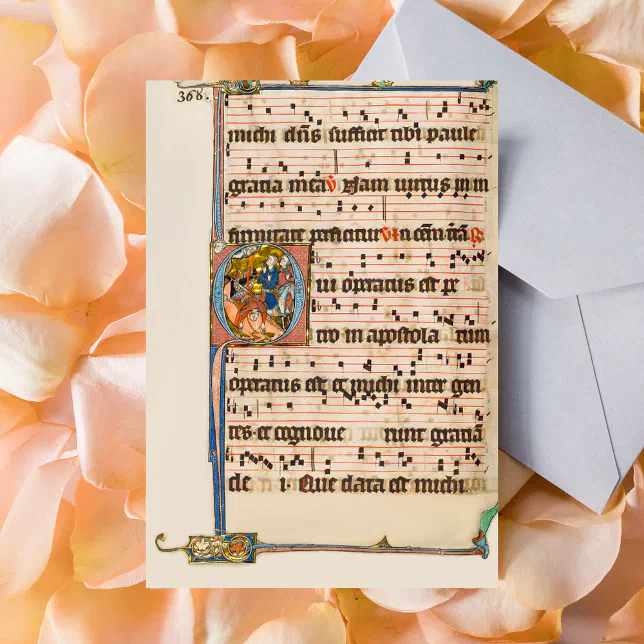 368.
michi dn̄s sufficit tibi paule
gratia mea ℣ Nam uirtus in in
firmitate perficitur
ui operatus est pe
tro in apostola tum
operatus est et michi inter gen
tes. et cognoue runt gratiā
de i. Que data est michi.